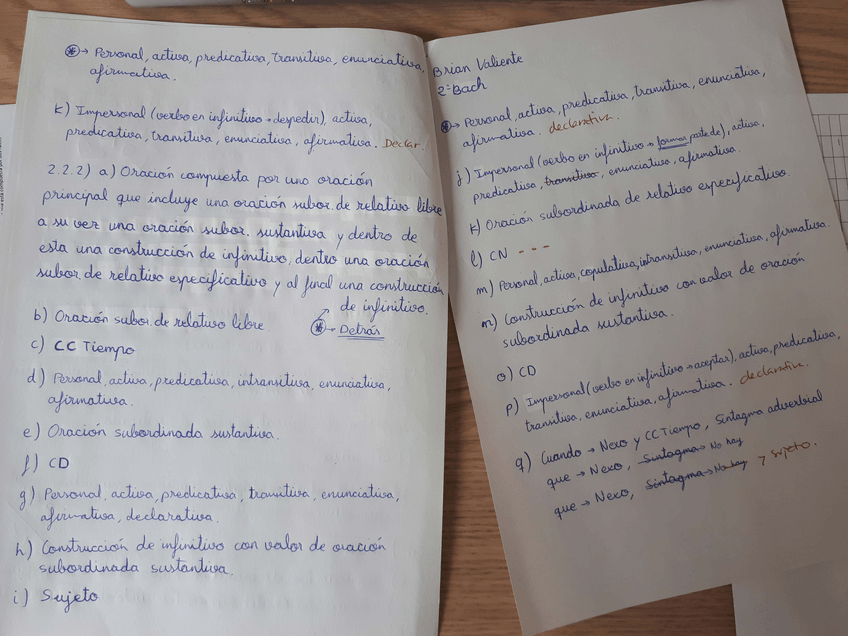 ⊛→ Personal, activa, predicativa, transitiva, enunciativa,
afirmativa.
k) Impersonal (verbo en infinitivo → despedir), activa,
predicativa, transitiva, enunciativa, afirmativa. Declar.
2.2.2) a) Oración compuesta por una oración
principal que incluye una oración subor. de relativo libre
a su vez una oración subor. sustantiva y dentro de
esta una construcción de infinitivo, dentro una oración
subor. de relativo especificativo y al final una construcción
de infinitivo.
⊛→ Detrás
b) Oración subor. de relativo libre
c) CC Tiempo
d) Personal, activa, predicativa, intransitiva, enunciativa,
afirmativa.
e) Oración subordinada sustantiva.
f) CD
g) Personal, activa, predicativa, transitiva, enunciativa,
afirmativa, declarativa.
h) Construcción de infinitivo con valor de oración
subordinada sustantiva.
i) Sujeto
Brian Valiente
2º Bach
⊛→ Personal, activa, predicativa, transitiva, enunciativa,
afirmativa. declarativa.
j) Impersonal (verbo en infinitivo → formar parte de), activa,
predicativa, transitiva, enunciativa, afirmativa.
k) Oración subordinada de relativo especificativo.
l) CN - - -
m) Personal, activa, copulativa, intransitiva, enunciativa, afirmativa.
n) Construcción de infinitivo con valor de oración
subordinada sustantiva.
o) CD
p) Impersonal (verbo en infinitivo → aceptar), activa, predicativa,
transitiva, enunciativa, afirmativa. declarativa.
q) Cuando → Nexo y CC Tiempo, Sintagma adverbial
que → Nexo, Sintagma → No hay
que → Nexo, Sintagma → No hay y sujeto.